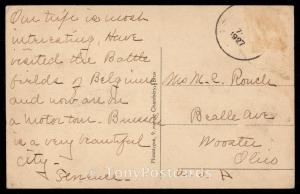 Our trip is most
interesting, Have
visited the Battle
fields of Belgium
and now are on
a motor tour. Brussels
is a very beautiful
city —
7
1927
Mrs M. C. Rouch
Bealle Ave
Wooster
Ohio
U.S.A
© TonyPostcards